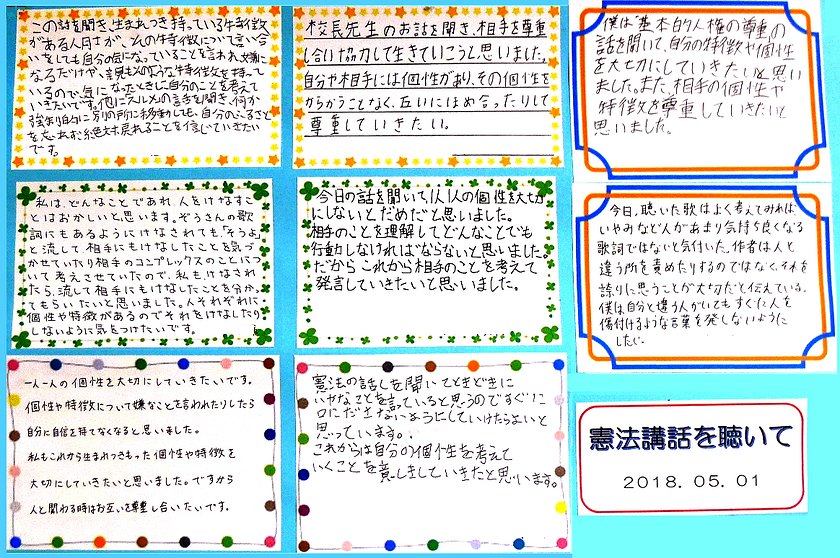 この話を聞き、生まれつき持っている特徴
がある人自身が、その特徴について言い合
いをしても自分の気になっていることを言われ、
なるだけや、
いるので、気になったときに自分のことを考えて
いきたいです。他にスイミーの話を聞き、何か
を忘れず、絶対戻れることを信じていきたい
です。
校長先生のお話を聞き、相手を尊重
し合い協力して生きていこうと思いました。
自分や相手には個性があり、その個性を
からかうことなく、互いにほめ合ったりして
尊重していきたい。
僕は"基本的人権の尊重の
話を聞いて、自分の特徴や個性
を大切にしていきたいと思い
ました。また、相手の個性や
特徴を尊重していきたいと
思いました。
私は、どんなことであれ、人をけなすこ
とはおかしいと思います。ぞうさんの歌
詞にもあるようにけなされても、「そうよ」
と流して相手にもけなしたことを気づ
かせていたり相手のコンプレックスのことにつ
いて考えさせていたので、私も、けなされ
たら、流して相手にもけなしたことを分かっ
てもらいたいと思いました。人それぞれに
個性や特徴があるのでそれをけなしたり
しないように気をつけたいです。
今日の話を聞いて、1人1人の個性を大切
にしないとだめだと思いました。
相手のことを理解してどんなことでも
行動しなければならないと思いました。
だからこれから相手のことを考えて
発言していきたいと思いました。
今日、聴いた歌はよく考えてみれば
いやみなど人があまり気持ち良くなる
歌詞ではないと気付いた。作者は人と
違う所を責めたりするのではなく、それを
誇りに思うことが大切だと伝えている。
僕は自分と違う人がいてもすぐに人を
傷付けるような言葉を発しないように
したい。
一人一人の個性を大切にしていきたいです。
個性や特徴について嫌なことを言われたりしたら
自分に自信を持てなくなると思いました。
私もこれから生まれつきもった個性や特徴を
大切にしていきたいと思いました。ですから
人と関わる時はお互いを尊重し合いたいです。
憲法の話しを聞いてときどきに
いやなことを言っていると思うのですぐに
口にださないようにしていけたらよいと
思っています。
これからは自分の個性を考えて
いくことを意しきしていきたと思います。
憲法講話を聴いて
2018.05.01